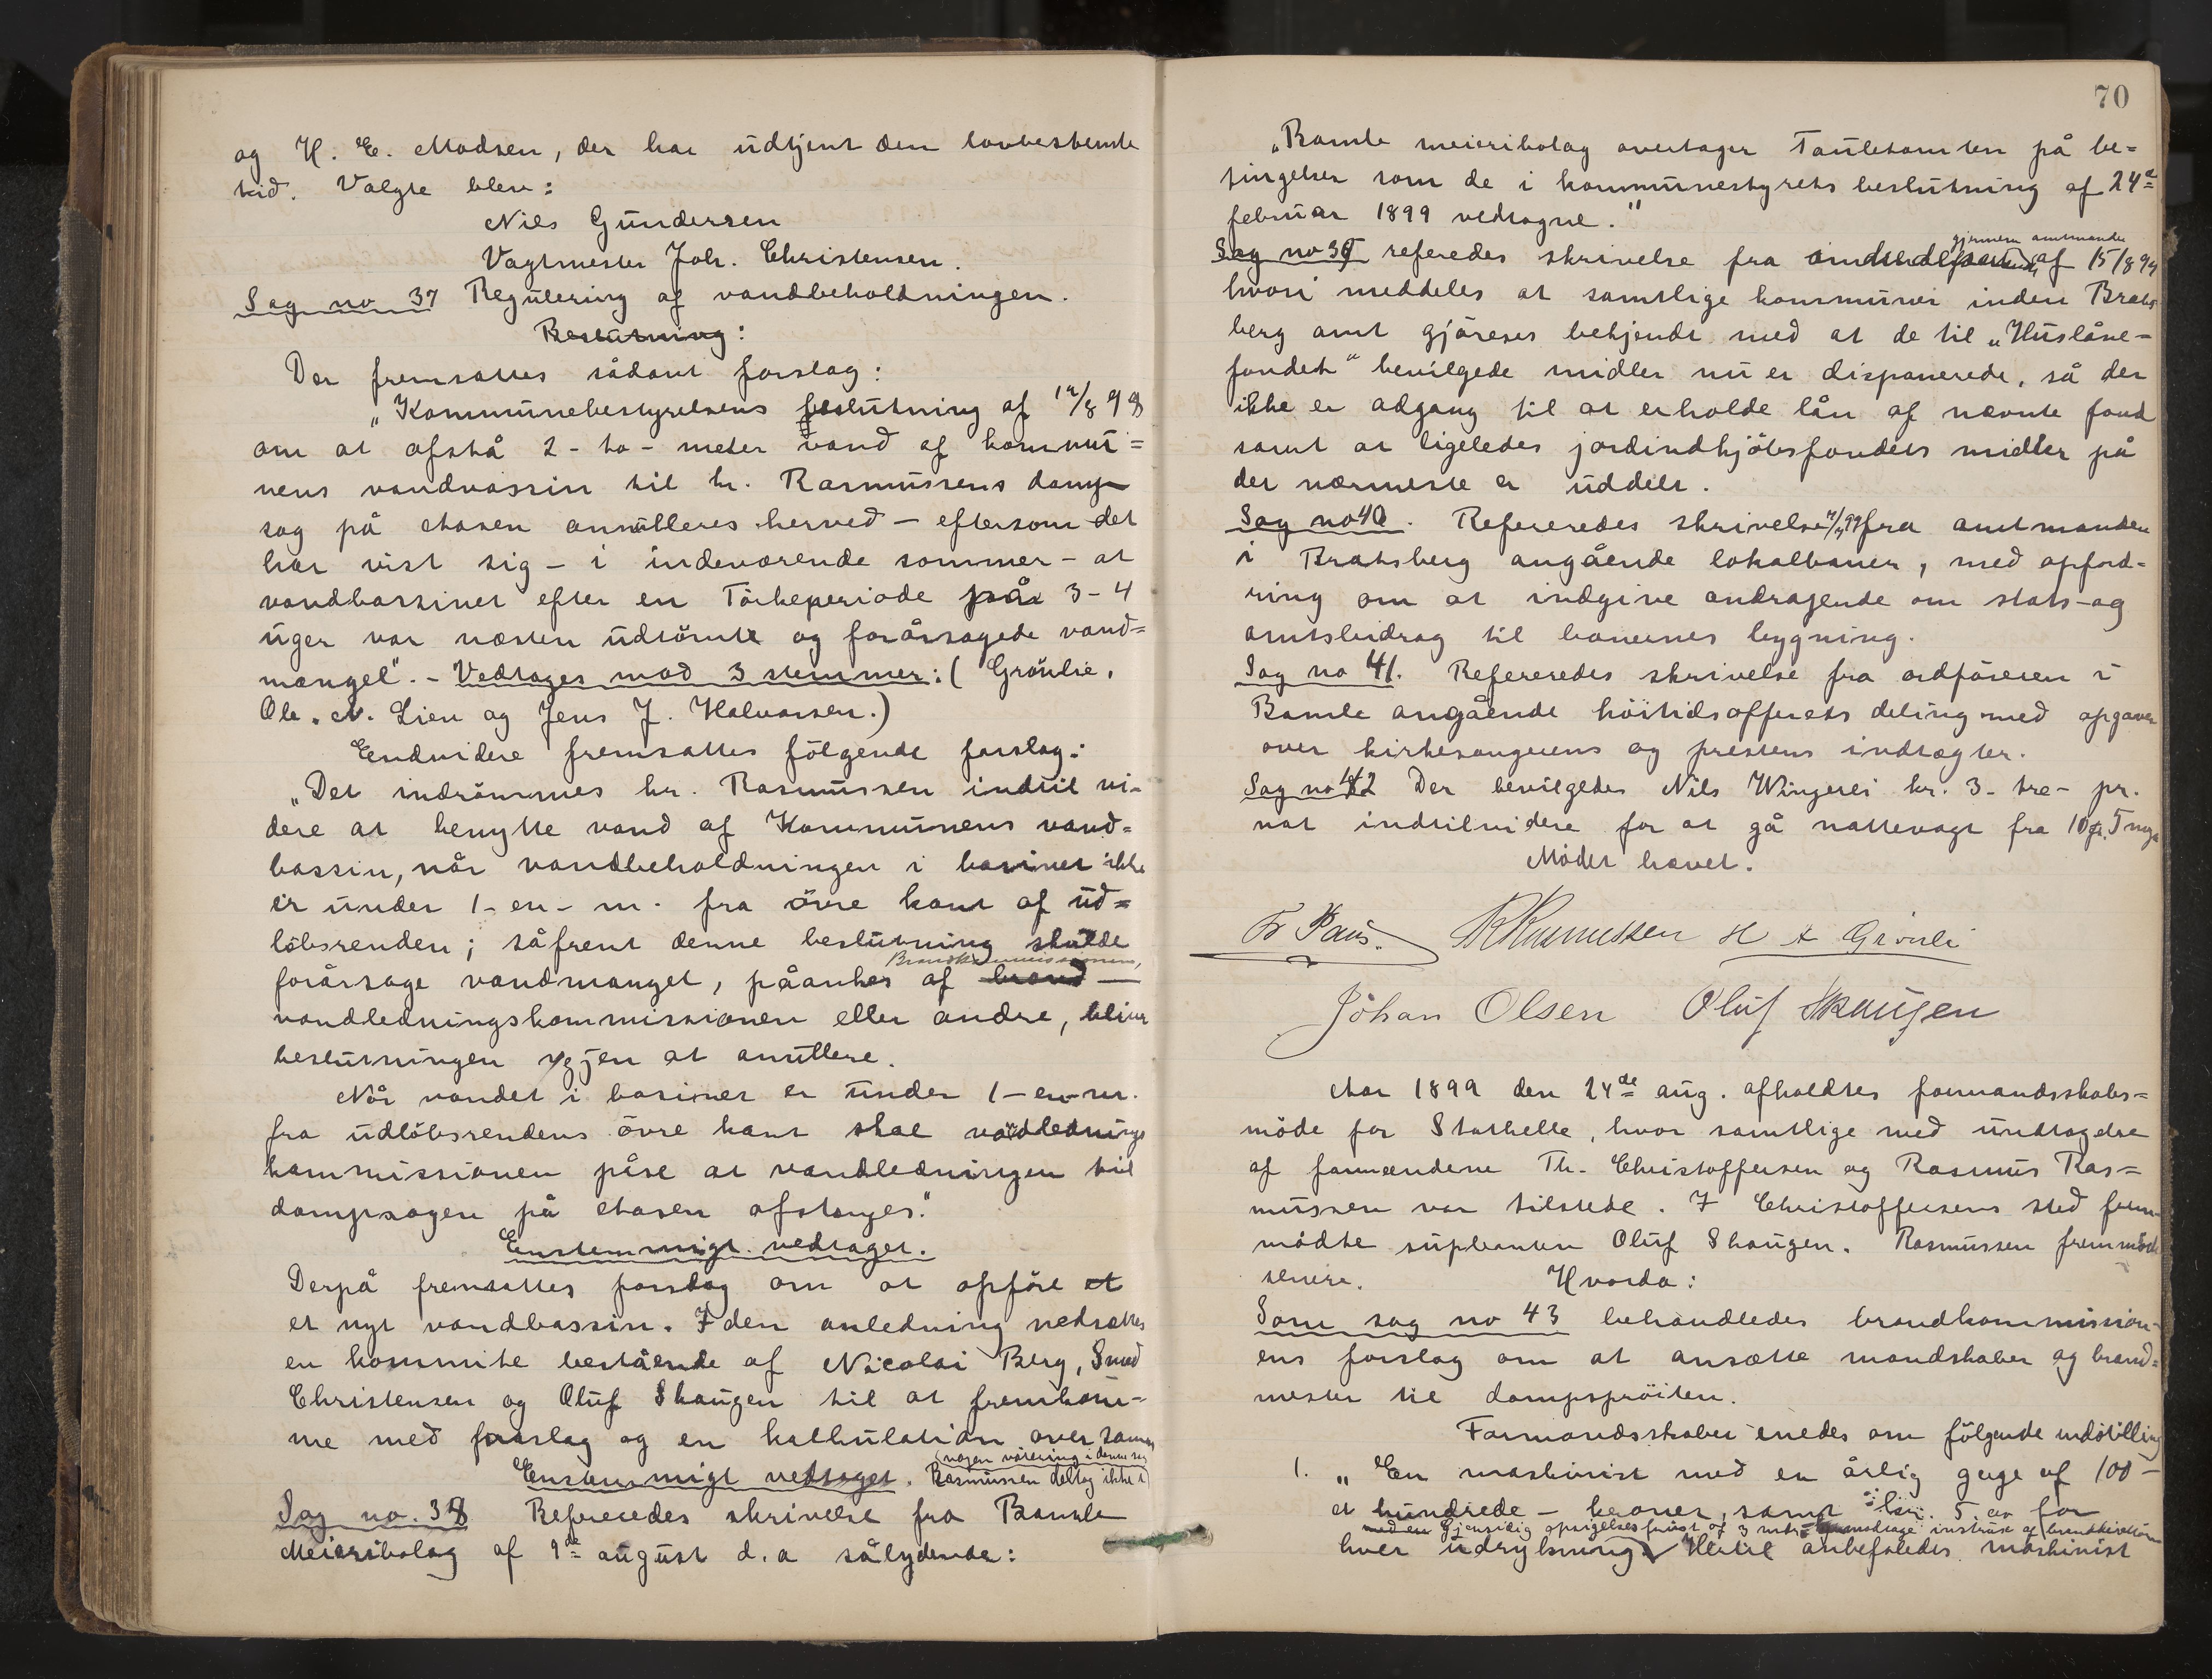 og H. E. Madsen, der har udtjent den lovbestemte
tid. Valgte blev:
Nils Gundersen
Vagtmester Joh. Christensen.
Sag no 37 Regulering af vandbeholdningen.
Beslutning:
Der fremsattes sådant forslag:
"Kommunebestyrelsens beslutning af 12/8 98
om at afstå 2 - to - meter vand af kommu=
nens vandbassin til hr. Rasmussens damp
sag på etasen annulleres herved - eftersom det
har vist sig - i indeværende sommer - at
vandbassinet efter en Törkeperiode på 3-4
uger var næsten udtömte og forårsagede vand=
mangel". - Vedtages mod 3 stemmer: (Grönlie,
Ole. N. Lien og Jens J. Halvorsen.)
Eendvidere fremsattes fölgende forslag:
"Det indrömmes hr. Rasmussen indtil vi-
dere at benytte vand af Kommunens vand=
bassin, når vandbeholdningen i basinet ikke
er under 1 - en - m. fra övre kant af ud=
löbsrenden; såfremt denne beslutning skulde
Brandkommissionen,
forårsage vandmangel, påankes af brand —
vandledningskommissionen eller andre, bliver
beslutningen igjen at anullere.
Når vandet i basinet er under 1 - en - m.
fra udlöbsrendens övre kant skal vandlednings
kommissionen påse at vandledningen til
dampsagen på etasen afstenges."
Enstemmigt vedtaget.
Derpå fremsattes forslag om at opföre et
et nyt vandbassin. I den anledning nedsattes
en kommite bestående af Nicolai Berg, Smed
Christensen og Oluf Skaugen til at fremkom-
me med forslag og en kalkulation over samme
nogen votering i denne sag
Enstemmigt vedtaget. Rasmussen deltog ikke i
Sag no. 38 Refereredes skrivelse fra Bamle
Meieribolag af 9de august d.a sålydende:
70
"Bamle meieribolag overtager Tauletomten på be=
tingelser som de i kommunestyrets beslutning af 24de
februar 1899 vedtagne."
gjennem amtmanden
Sag no 39 referedes skrivelse fra af 15/8 99
hvori meddeles at samtlige kommuner inden Brats
berg amt gjöreses bekjendt med at de til "Huslåne-
fondet" bevilgede midler nu er disponerede, så der
ikke er adgang til at erholde lån af nævnte fond
samt at ligeledes jordindkjöbsfondets midler på
det nærmeste er uddelt.
Sag no 40. Refereredes skrivelse fra amtmanden
i Bratsberg angående lokalbaner, med opford-
ring om at indgive andragende om stats- og
amtsbidrag til banernes bygning.
Sag no 41. Refereredes skrivelse fra ordföreren i
Bamle angående höitidsofferets deling med opgaver
over kirkesangerens og prestens indtægter.
Sag no 42 Der bevilgedes Nils Wingerei kr. 3 - tre - pr.
nat indtilvidere for at gå nattevagt fra 10
Mödet hævet.
Fr Paus. R Rasmussen H A Grönli
Johan Olsen Oluf Skaugen
Aar 1899 den 24de aug. afholdtes formandsskabs=
möde for Stathelle, hvor samtlige med undtagelse
af formændene Th. Christoffersen og Rasmus Ras=
mussen var tilstede. I Christoffersens sted frem-
mödte suplianten Oluf Skaugen. Rasmussen fremmödte
senere. Hvorda:
Som sag no 43 behandledes brandkommission-
ens forslag om at ansætte mandskaber og brand=
mester til dampspröiten.
Formandsskabet enedes om fölgende indstilling
1. "En maskinist med en årlig gage af 100 -
et hundrede - kroner, samt kr. 5. for
med en Gjensidig opsigelsesfrist af 3 mdr.
hver udrykning. Hertil anbefaledes maskinist